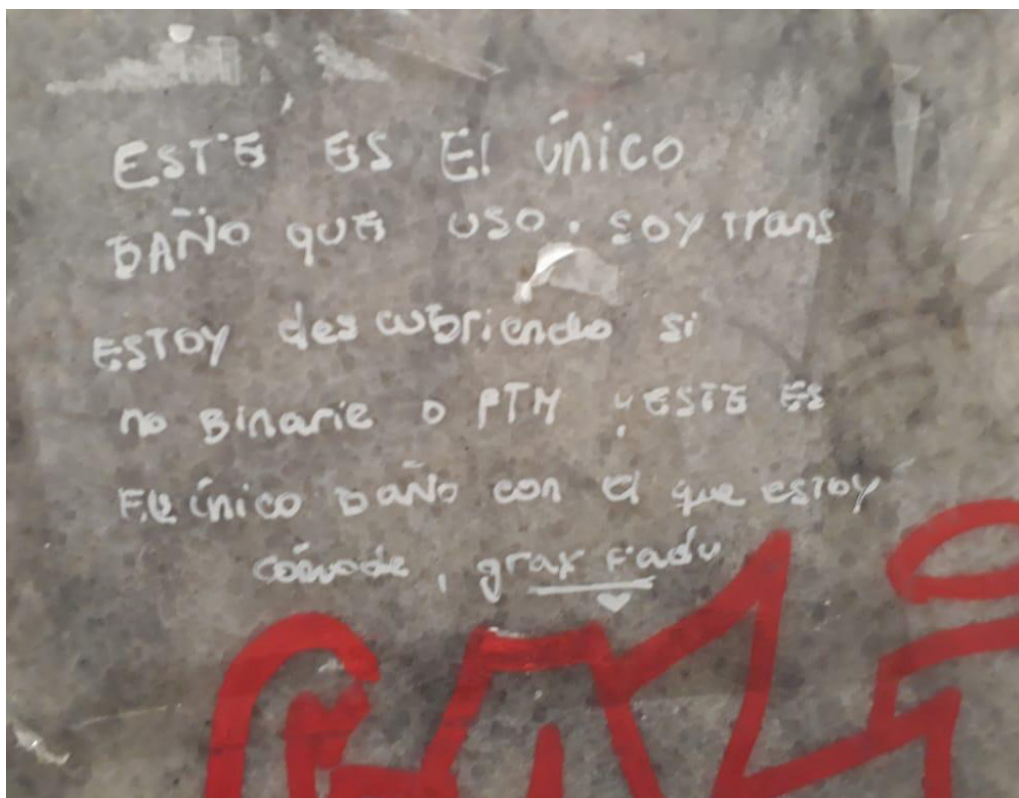 ESTE ES El único
BAÑO QUE USO. SOY Trans
ESTOY descubriendo si
no Binarie o FTM y ESTE ES
EL único BAÑO con el que estoy
cómode, grax Fadu